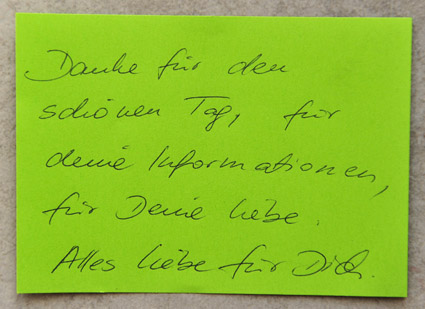 Danke für den
schönen Tag, für
deine Informationen,
für Deine Liebe.
Alles Liebe für Dich.